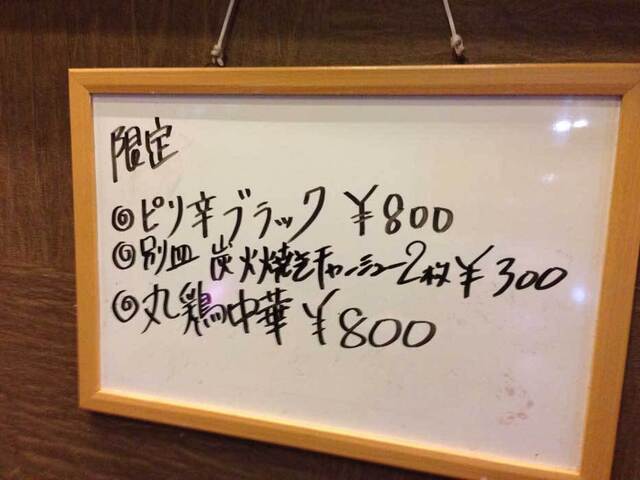 限定
◎ピリ辛ブラック ¥800
◎別皿 炭火焼きチャーシュー2枚¥300
◎丸鶏中華 ¥800